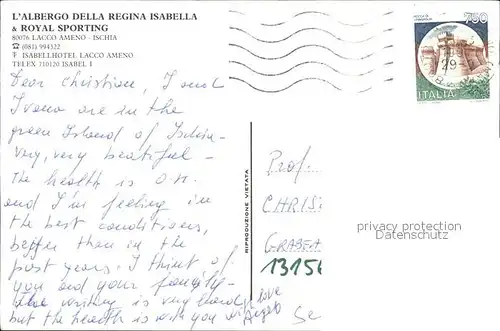 L'ALBERGO DELLA REGINA ISABELLA
& ROYAL SPORTING
80076 LACCO AMENO - ISCHIA
☎ (081) 994322
ISABELLHOTEL LACCO AMENO
TELEX 710120 ISABEL I
750
ITALIA
Dear Christian, I and
Ivana are in the
green Island of Ischia -
Very, very beatiful -
The health is O.K.
and I'm feeling in
the best conditions,
better than in the
past years. I think of
you and your family -
The writing is very hard
but the health is with you
love
Angelo
RIPRODUZIONE VIETATA
Prof.
CHRIS
GRABEA
13156
Se
privacy protection
Datenschutz